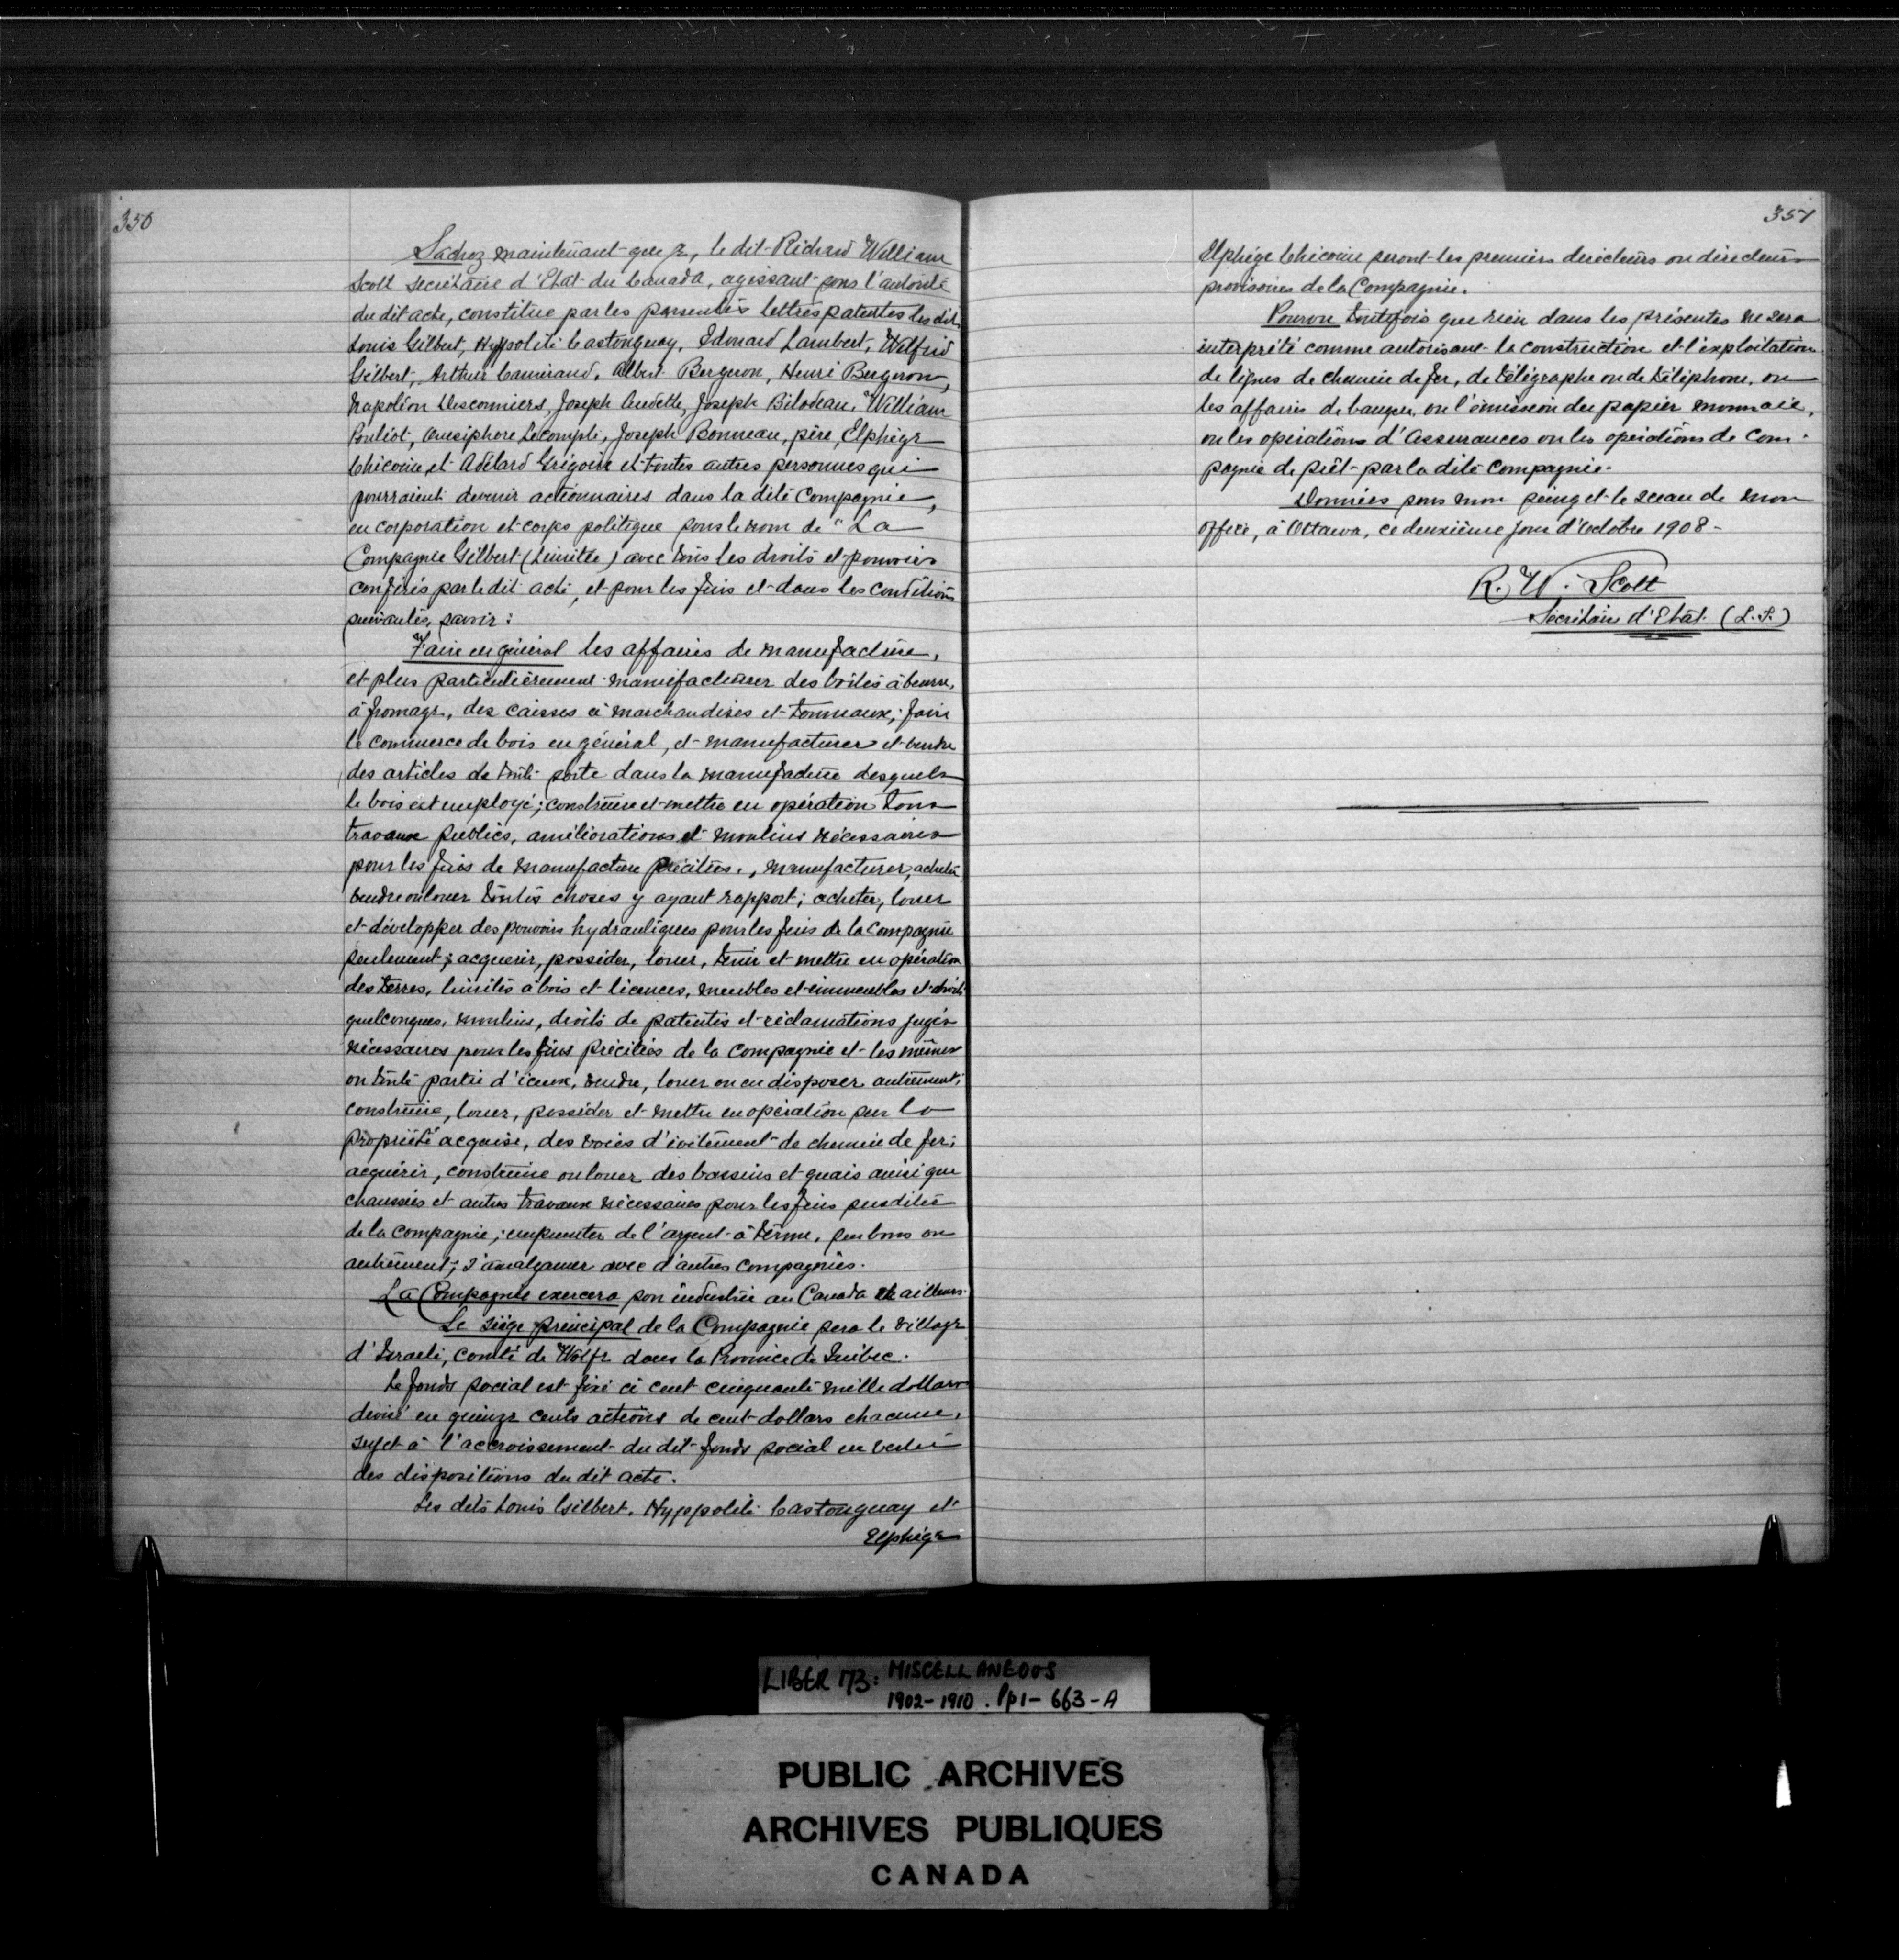 350
Sachez maintenant que je, le dit Richard William
Scott secrétaire d'Etat du Canada, agissant sous l'autorité
du dit acte, constitue par les présentes lettres patentes les dits
Louis Gilbert, Hyppolite Castonguay, Edouard Lambert, Wilfrid
Gilbert, Arthur Camirand, Albert Bergeron, Henri Bergeron,
Napoléon Descormiers, Joseph Audette, Joseph Bilodeau, William
Pouliot, Onésiphore Lecompte, Joseph Bonneau, père, Elphège
Chicoine et Adélard Grégoire et toutes autres personnes qui
pourraient devenir actionnaires dans la dite Compagnie,
en corporation et corps politique sous le nom de "La
Compagnie Gilbert (Limitée) avec tous les droits et pouvoirs
conférés par le dit acte, et pour les fins et dans les conditions
suivantes, savoir:
Faire en général les affaires de manufacture,
et plus particulièrement manufacturer des boîtes à beurre,
à fromage, des caisses à marchandises et tonneaux; faire
le commerce de bois en général, et manufacturer et vendre
des articles de toute sorte dans la manufacture desquels
le bois est employé; construire et mettre en opération tous
travaux publics, améliorations et moulins nécessaires
pour les fins de manufacture précitées, manufacturer, acheter
vendre ou louer toutes choses y ayant rapport; acheter, louer
et développer des pouvoirs hydrauliques pour les fins de la Compagnie
seulement; acquérir, posséder, louer, tenir et mettre en opération
des terres, limites à bois et licences, meubles et immeubles et droits
quelconques, moulins, droits de patentes et réclamations jugés
nécessaires pour les fins précitées de la Compagnie et les mêmes
ou toute partie d'iceux, vendre, louer ou en disposer autrement;
construire, louer, posséder et mettre en opération sur la
propriété acquise, des voies d'évitement de chemin de fer;
acquérir, construire ou louer des bassins et quais ainsi que
chaussées et autres travaux nécessaires pour les fins susdites
de la Compagnie; emprunter de l'argent à terme, sur bons ou
autrement; s'amalgamer avec d'autres compagnies.
La Compagnie exercera son industrie au Canada et ailleurs.
Le siège principal de la Compagnie sera le village
d'Israeli, comté de Wolfe dans la Province de Québec.
Le fonds social est fixé à cent cinquante mille dollars
divisé en quinze cents actions de cent dollars chacune,
sujet à l'accroissement du dit fonds social en vertu
des dispositions du dit acte.
Les dits Louis Gilbert, Hyppolite Castonguay et
Elphège
351
Elphège Chicoine seront les premiers directeurs ou directeurs
provisoires de la Compagnie.
Pourvu toutefois que rien dans les présentes ne sera
interprété comme autorisant la construction et l'exploitation
de lignes de chemin de fer, de télégraphe ou de téléphone, ou
les affaires de banque, ou l'émission du papier monnaie,
ou les opérations d'Assurances ou les opérations de Com-
pagnie de prêt par la dite Compagnie.
Données sous mon seing et le sceau de mon
office, à Ottawa, ce deuxième jour d'octobre 1908 -
R. W. Scott
Secrétaire d'Etat (L.S.)
LIBER 173: MISCELLANEOUS
1902-1910. Pp1-663-A
PUBLIC ARCHIVES
ARCHIVES PUBLIQUES
CANADA